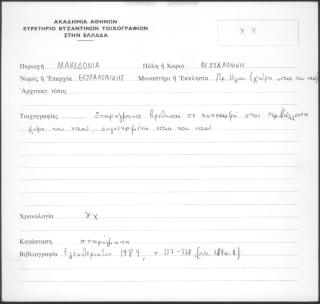 ΑΚΑΔΗΜΙΑ ΑΘΗΝΩΝ
ΕΥΡΕΤΗΡΙΟ ΒΥΖΑΝΤΙΝΩΝ ΤΟΙΧΟΓΡΑΦΙΩΝ
ΣΤΗΝ ΕΛΛΑΔΑ
XX
Περιοχή ΜΑΚΕΔΟΝΙΑ Πόλη ή Χωριό ΘΕΣΣΑΛΟΝΙΚΗ
Νομός ή Επαρχία ΘΕΣΣΑΛΟΝΙΚΗΣ Μοναστήρι ή Εκκλησία Πρ. Ηλίας (χώρος
Αρχιτεκτ. τύπος
Τοιχογραφίες Σπαράγματα βρέθηκαν σε ανασκαφή στον περιβάλλοντα
χώρο του ναού, συγκεντρωμένα νότια του ναού
Χρονολογία XX
Κατάσταση σπαράγματα
Βιβλιογραφία Ελευθεριάδου 1989, 337-338